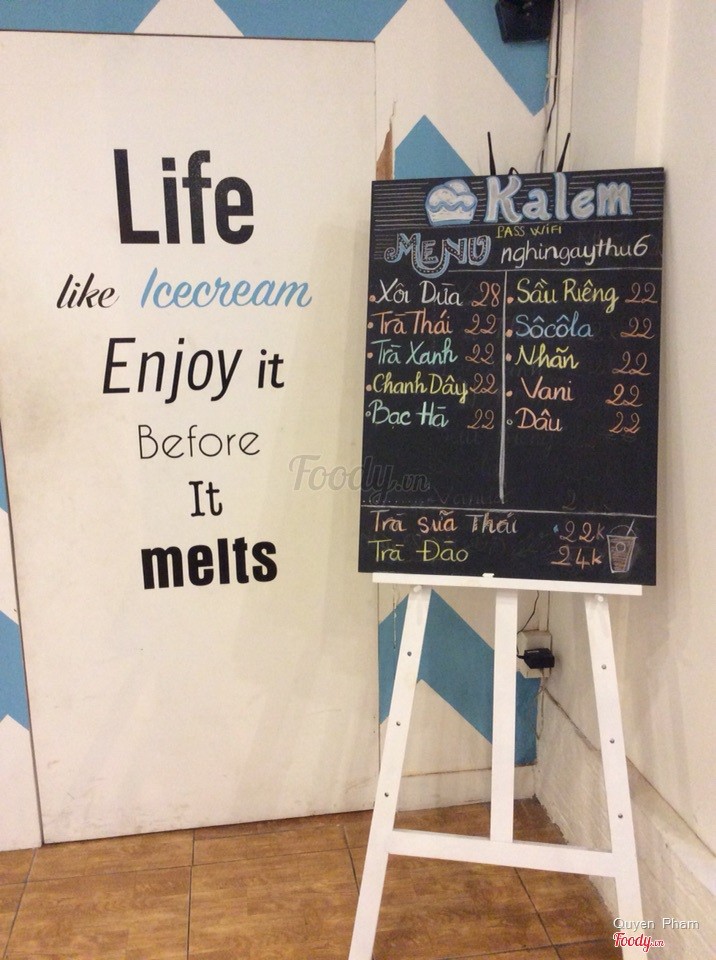 Life
like Icecream
Enjoy it
Before
It
melts
Kalem
PASS WIFI
MENU nghingaythu6
Xôi Dừa 28
Trà Thái 22
Trà Xanh 22
Chanh Dây 22
Bạc Hà 22
Sầu Riêng 22
Sôcôla 22
Nhãn 22
Vani 22
Dâu 22
Trà sữa Thái 22k
Trà Đào 24k
Foody.vn
Quyen Pham
Foody.vn